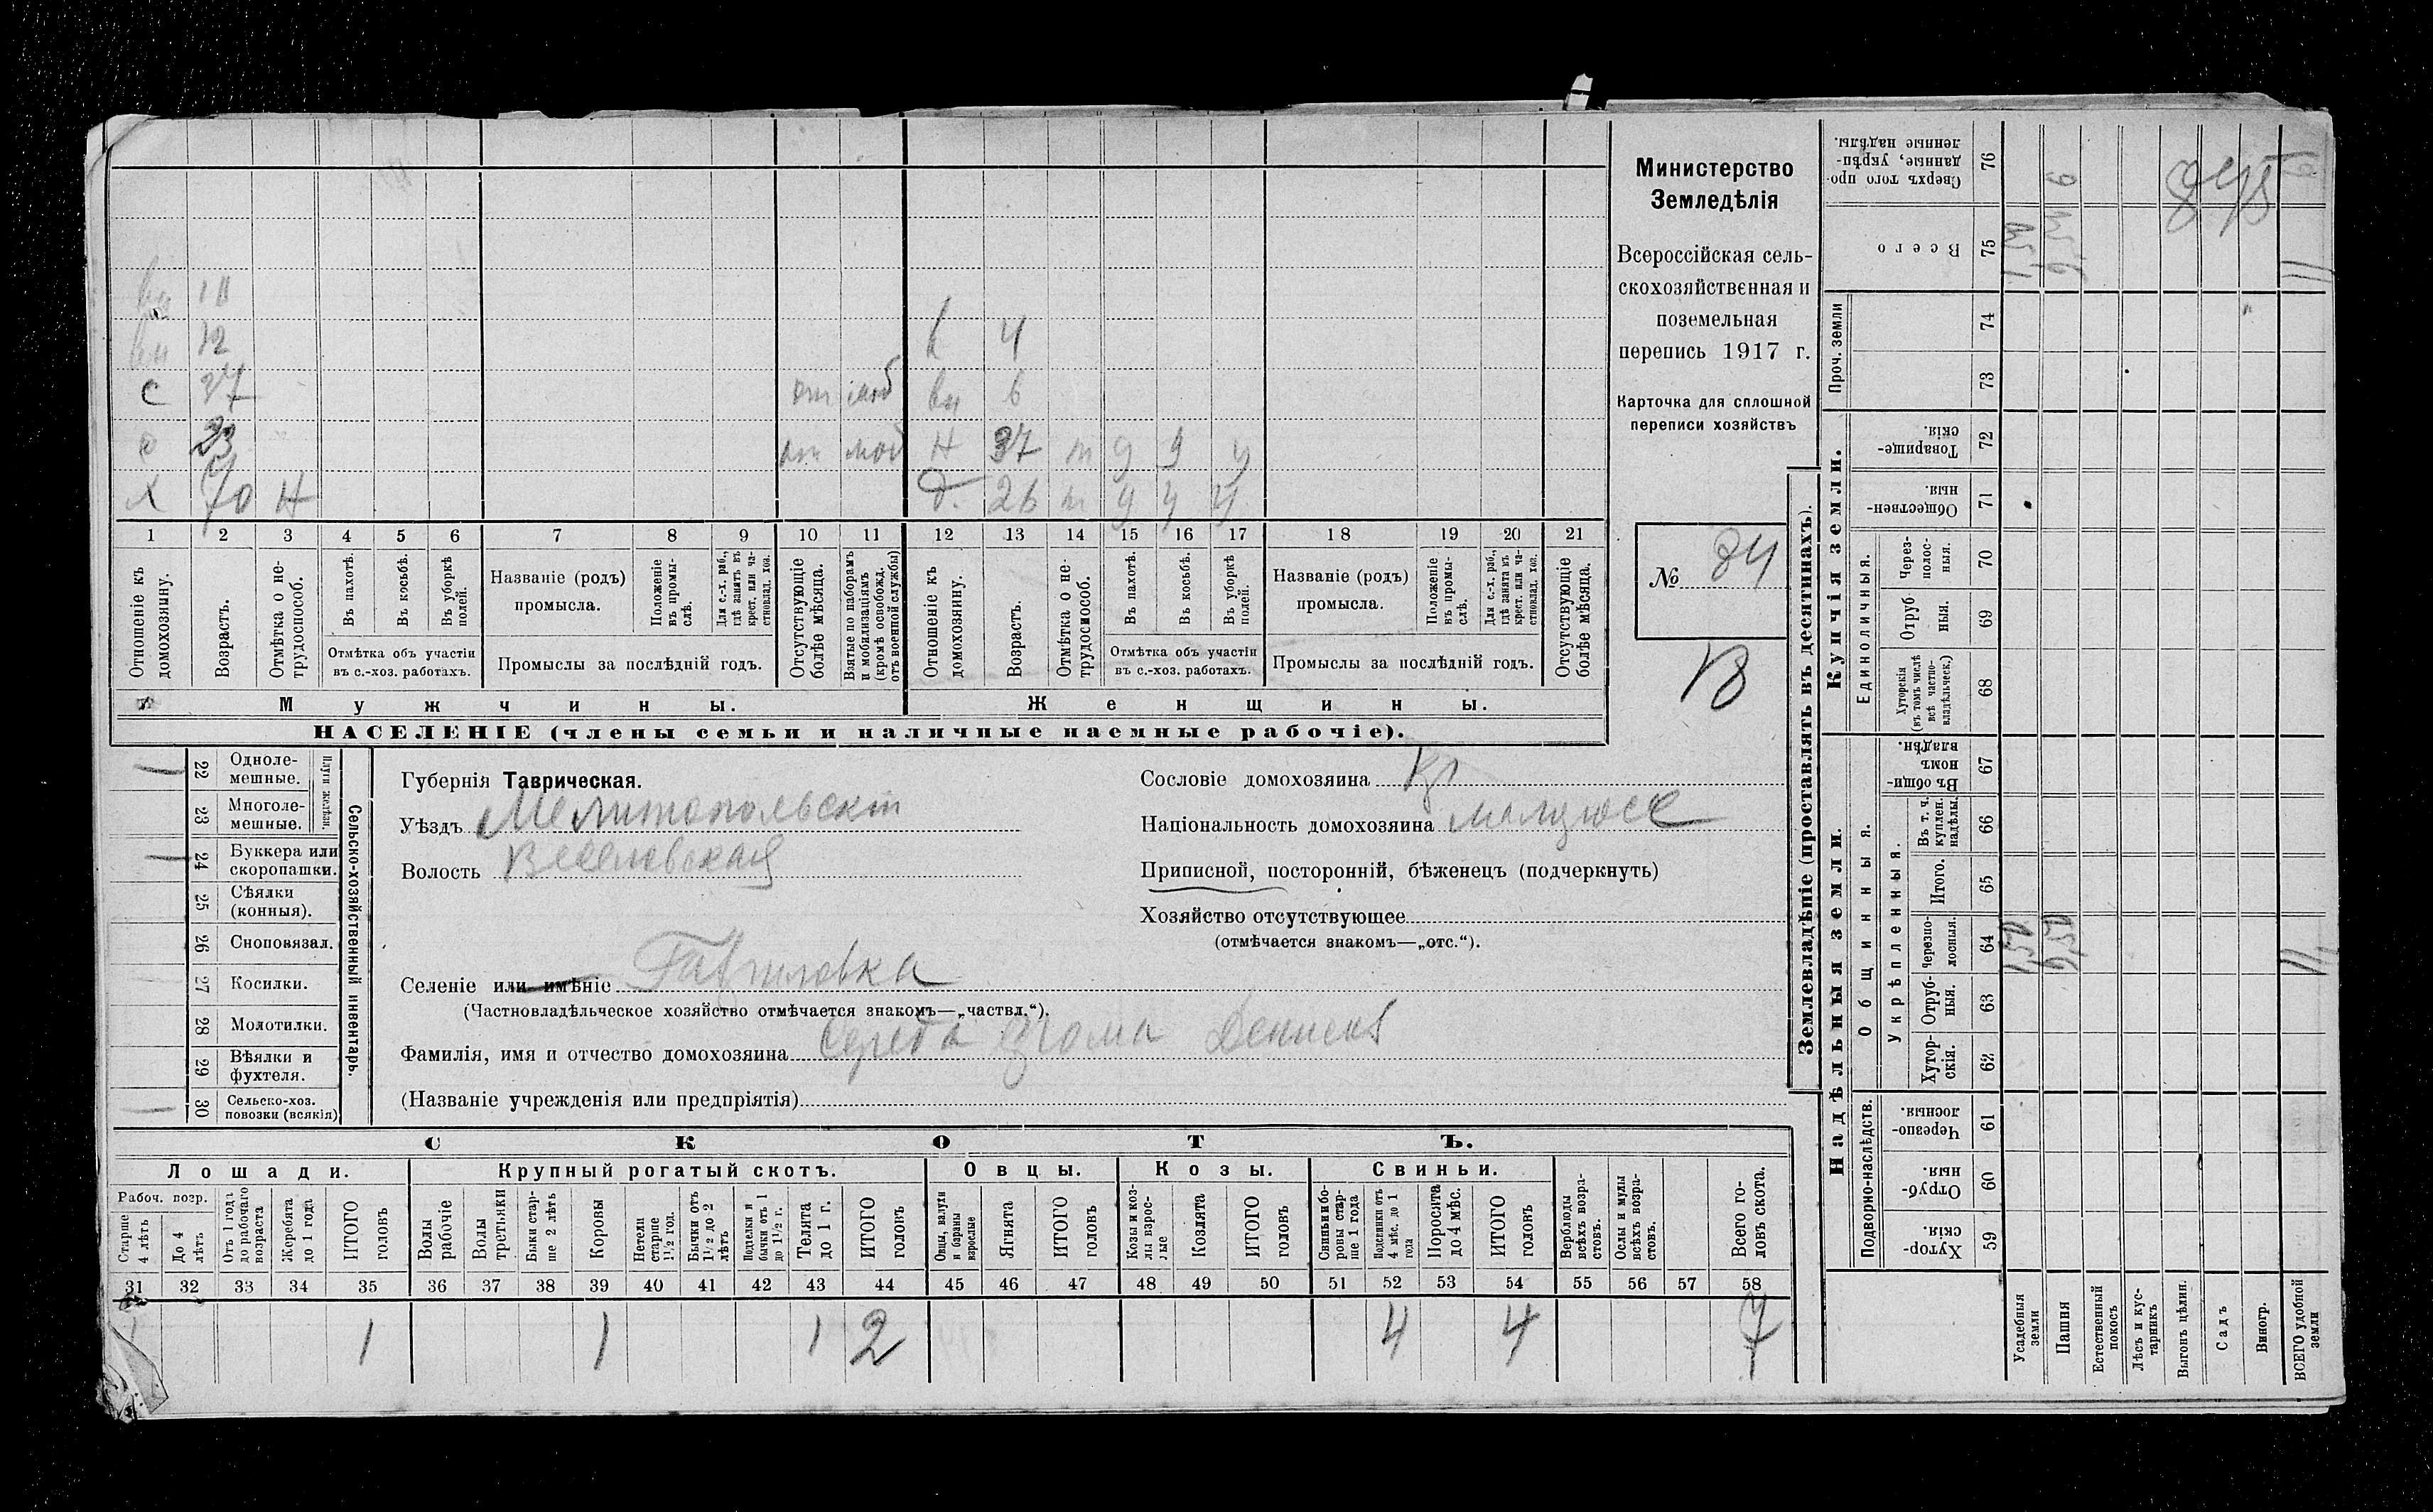 вн 11
вн 12
к 4
с 37
от моб
вн 6
с 23
от моб
н 37 т у у у
х 70 н
д. 26 т у у у
1 2 3 4 5 6 7 8 9 10 11 12 13 14 15 16 17 18 19 20 21
Отношеніе къ домохозяину.
Возрастъ.
Отмѣтка о нетрудоспособ.
Въ пахотѣ.
Въ косьбѣ.
Въ уборкѣ полей.
Отмѣтка объ участіи
въ с.-хоз. работахъ.
Названіе (родъ)
промысла.
Положеніе въ промыслѣ.
Для с.-х. раб., гдѣ занятъ въ крест. или частновлад. хоз.
Промыслы за послѣдній годъ.
Отсутствующіе болѣе мѣсяца.
Взятые по наборамъ и мобилизаціямъ (кромѣ освобожд. отъ военной службы)
Отношеніе къ домохозяину.
Возрастъ.
Отмѣтка о нетрудоспособ.
Въ пахотѣ.
Въ косьбѣ.
Въ уборкѣ полей.
Отмѣтка объ участіи
въ с.-хоз. работахъ.
Названіе (родъ)
промысла.
Положеніе въ промыслѣ.
Для с.-х. раб., гдѣ занята въ крест. или частновлад. хоз.
Промыслы за послѣдній годъ.
Отсутствующіе болѣе мѣсяца.
Мужчины.
Женщины.
НАСЕЛЕНІЕ (члены семьи и наличные наемные рабочіе).
Министерство
Земледѣлія
Всероссійская сель-
скохозяйственная и
поземельная
перепись 1917 г.
Карточка для сплошной
переписи хозяйствъ
№ 84
В
22 Одноле-
мешные.
23 Многоле-
мешные.
Плуги желѣзн.
24 Буккера или
скоропашки.
25 Сѣялки
(конныя).
26 Сноповязал.
27 Косилки.
28 Молотилки.
29 Вѣялки и
фухтеля.
30 Сельско-хоз.
повозки (всякія)
Сельско-хозяйственный инвентарь.
Губернія Таврическая.
Уѣздъ Мелитопольскій
Волость Веселовская
Селеніе или имѣніе Гавриловка
(Частновладѣльческое хозяйство отмѣчается знакомъ—„частвл.“).
Фамилія, имя и отчество домохозяина Середа Фома Денисов
(Названіе учрежденія или предпріятія)
Сословіе домохозяина Кр
Національность домохозяина малоросс
Приписной, посторонній, бѣженецъ (подчеркнуть)
Хозяйство отсутствующее
(отмѣчается знакомъ—„отс.“).
СКОТЪ.
Лошади.
Крупный рогатый скотъ.
Овцы.
Козы.
Свиньи.
Рабоч. возр.
Старше 4 лѣтъ
До 4 лѣтъ
Отъ 1 годъ до рабочаго возраста
Жеребята до 1 года
ИТОГО головъ
Волы рабочіе
Волы третьяки
Быки старше 2 лѣтъ
Коровы
Нетели старше 1½ год.
Бычки отъ 1½ до 2 лѣтъ
Подтелки и бычки отъ 1 до 1½ г.
Телята до 1 г.
ИТОГО головъ
Овцы, валухи и бараны взрослые
Ягнята
ИТОГО головъ
Козы и козлы взрослые
Козлята
ИТОГО головъ
Свиньи и боровы старше 1 года
Подсвинки отъ 4 мѣс. до 1 года
Поросята до 4 мѣс.
ИТОГО головъ
Верблюды всѣхъ возрастовъ.
Ослы и мулы всѣхъ возрастовъ.
Всего головъ скота.
31 32 33 34 35 36 37 38 39 40 41 42 43 44 45 46 47 48 49 50 51 52 53 54 55 56 57 58
1 1 1 2 4 4 7
Землевладѣніе (проставлять въ десятинахъ).
Надѣльныя земли.
Купчія земли.
Проч. земли
Подворно-наслѣдств.
Общинныя.
Укрѣпленныя.
Единоличныя.
Хуторскія. 59
Отрубныя. 60
Черезполосныя. 61
Хуторскія. 62
Отрубныя. 63
Черезполосныя. 64
Итого. 65
Въ т. ч. куплен. надѣлы. 66
Въ общиномъ владѣн. 67
Хуторскія (въ томъ числѣ всѣ частновладѣльческ.) 68
Отрубныя. 69
Черезполосныя. 70
Общественныя. 71
Товарищескія. 72
73
74
Всего 75
Сверхъ того проданные, укрѣпленные надѣлы. 76
Усадебныя земли
Пашня
Естественный покосъ
Лѣсъ и кустарникъ
Выгонъ цѣлин.
Садъ
Виногр.
ВСЕГО удобной земли
11
11